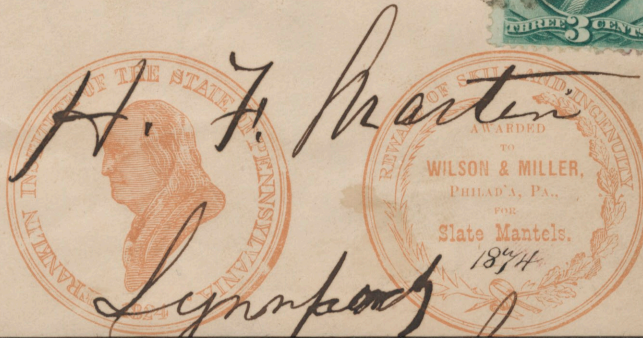 THREE 3 CENT
H. F. Martin
FRANKLIN INSTITUTE OF THE STATE OF PENNSYLVANIA
1824
REWARD OF SKILL AND INGENUITY
AWARDED
TO
WILSON & MILLER,
PHILAD'A, PA.,
FOR
Slate Mantels.
1874